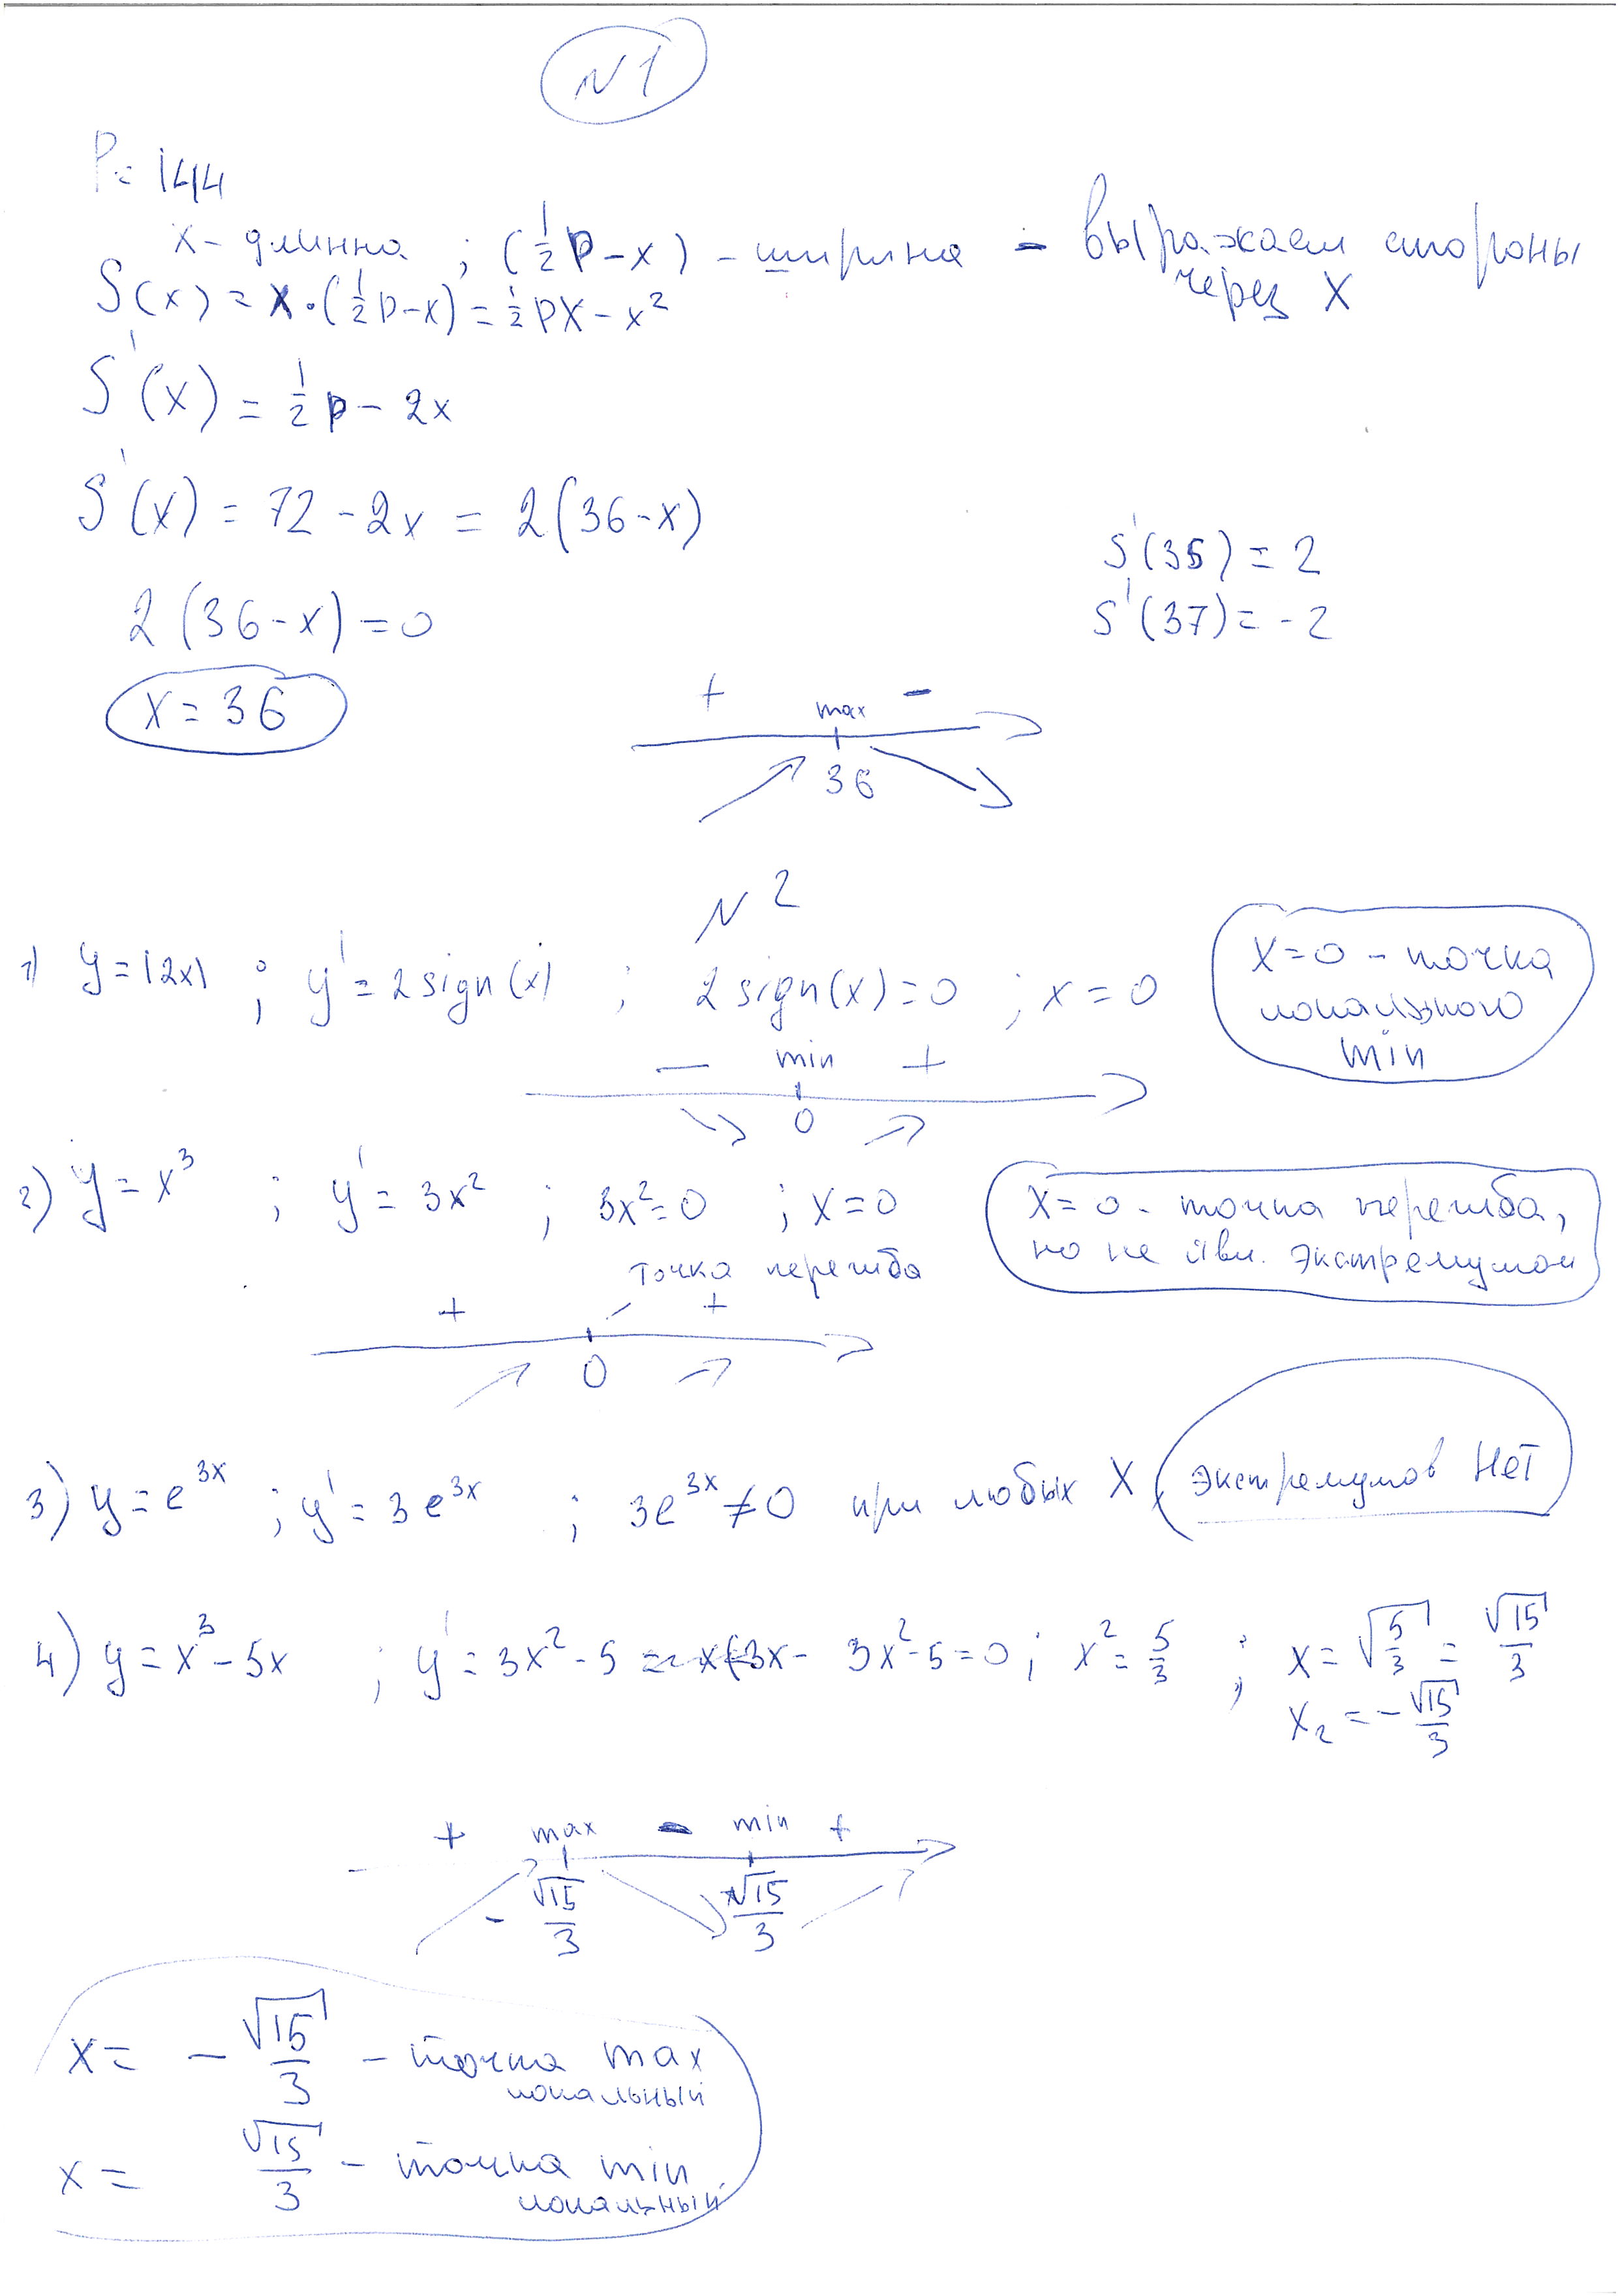 N 1
P = 144
x – длинна ; (1/2 P – x) – ширина – выражаем стороны через X
S(x) = x · (1/2 p – x) = 1/2 px – x²
S'(x) = 1/2 p – 2x
S'(x) = 72 – 2x = 2(36 – x)
S'(35) = 2
2(36 – x) = 0
S'(37) = -2
x = 36
+ max –
36
N 2
1) y = |2x| ; y' = 2 sign(x) ; 2 sign(x) = 0 ; x = 0
x = 0 – точка локального min
– min +
0
2) y = x³ ; y' = 3x² ; 3x² = 0 ; x = 0
x = 0 – точка перегиба, но не явл. экстремумом
точка перегиба
+ +
0
3) y = e^3x ; y' = 3e^3x ; 3e^3x ≠ 0 при любых X, экстремумов нет
4) y = x³ – 5x ; y' = 3x² – 5 = x(3x – 3x² – 5 = 0 ; x² = 5/3 ; x = √5/3 = √15/3
x₂ = – √15/3
+ max – min +
– √15/3 √15/3
x = – √15/3 – точка max
локальный
x = √15/3 – точка min
локальный